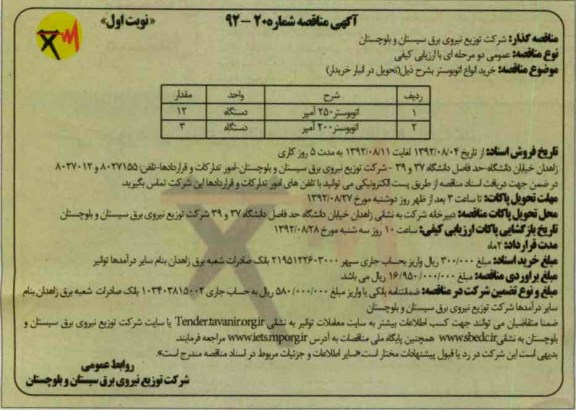 آگهی مناقصه شماره ۲۰-۹۲
«نوبت اول»
مناقصه گذار: شرکت توزیع نیروی برق سیستان و بلوچستان
نوع مناقصه: عمومی دو مرحله ای با ارزیابی کیفی
موضوع مناقصه: خرید انواع اتوبوستر بشرح ذیل(تحویل در انبار خریدار)
ردیف شرح واحد مقدار
۱ اتوبوستر ۲۵۰ آمپر دستگاه ۱۲
۲ اتوبوستر ۲۰۰ آمپر دستگاه ۳
تاریخ فروش اسناد: از تاریخ ۱۳۹۲/۰۸/۰۴ لغایت ۱۳۹۲/۰۸/۱۱ به مدت ۵ روز کاری
زاهدان خیابان دانشگاه-حد فاصل دانشگاه ۳۷ و ۳۹ - شرکت توزیع نیروی برق سیستان و بلوچستان-امور تدارکات و قراردادها-تلفن: ۸۰۲۷۱۵۵ و ۸۰۲۷۰۱۲
در ضمن جهت دریافت اسناد مناقصه از طریق پست الکترونیکی می توانید با تلفن های امور تدارکات و قراردادها این شرکت تماس بگیرید.
مهلت تحویل پاکات: تا ساعت ۳ بعد از ظهر روز دوشنبه مورخ ۱۳۹۲/۰۸/۲۷
محل تحویل پاکات مناقصه: دبیرخانه شرکت به نشانی زاهدان خیابان دانشگاه حد فاصل دانشگاه ۳۷ و ۳۹ شرکت توزیع نیروی برق سیستان و بلوچستان
تاریخ بازگشایی پاکات ارزیابی کیفی: ساعت ۱۰ روز سه شنبه مورخ ۱۳۹۲/۰۸/۲۸
مدت قرارداد: ۲ماه
مبلغ خرید اسناد: مبلغ ۳۰۰/۰۰۰ ریال واریز بحساب جاری سپهر ۲۱۹۵۱۲۲۶۰۳۰۰۰ بانک صادرات شعبه برق زاهدان بنام سایر درآمدها توانیر
مبلغ برآوردی مناقصه: مبلغ ۱۶/۹۵۰/۰۰۰/۰۰۰ ریال می باشد
مبلغ و نوع تضمین شرکت در مناقصه: ضمانتنامه بانکی یا واریز مبلغ ۵۸۰/۰۰۰/۰۰۰ ریال به حساب جاری ۱۰۳۴۰۳۸۱۵۰۰۲ بانک صادرات شعبه برق زاهدان بنام
سایر درآمدها شرکت توزیع نیروی برق سیستان و بلوچستان
ضمنا متقاضیان می توانند جهت کسب اطلاعات بیشتر به سایت معاملات توانیر به نشانی Tender.tavanir.org.ir یا سایت شرکت توزیع نیروی برق سیستان و
بلوچستان به نشانی www.sbedc.ir همچنین پایگاه ملی مناقصات به آدرس www.iets.mporg.ir مراجعه فرمایند.
بدیهی است این شرکت در رد یا قبول پیشنهادات مختار است.«سایر اطلاعات و جزئیات مربوط در اسناد مناقصه مندرج است».
روابط عمومی
شرکت توزیع نیروی برق سیستان و بلوچستان